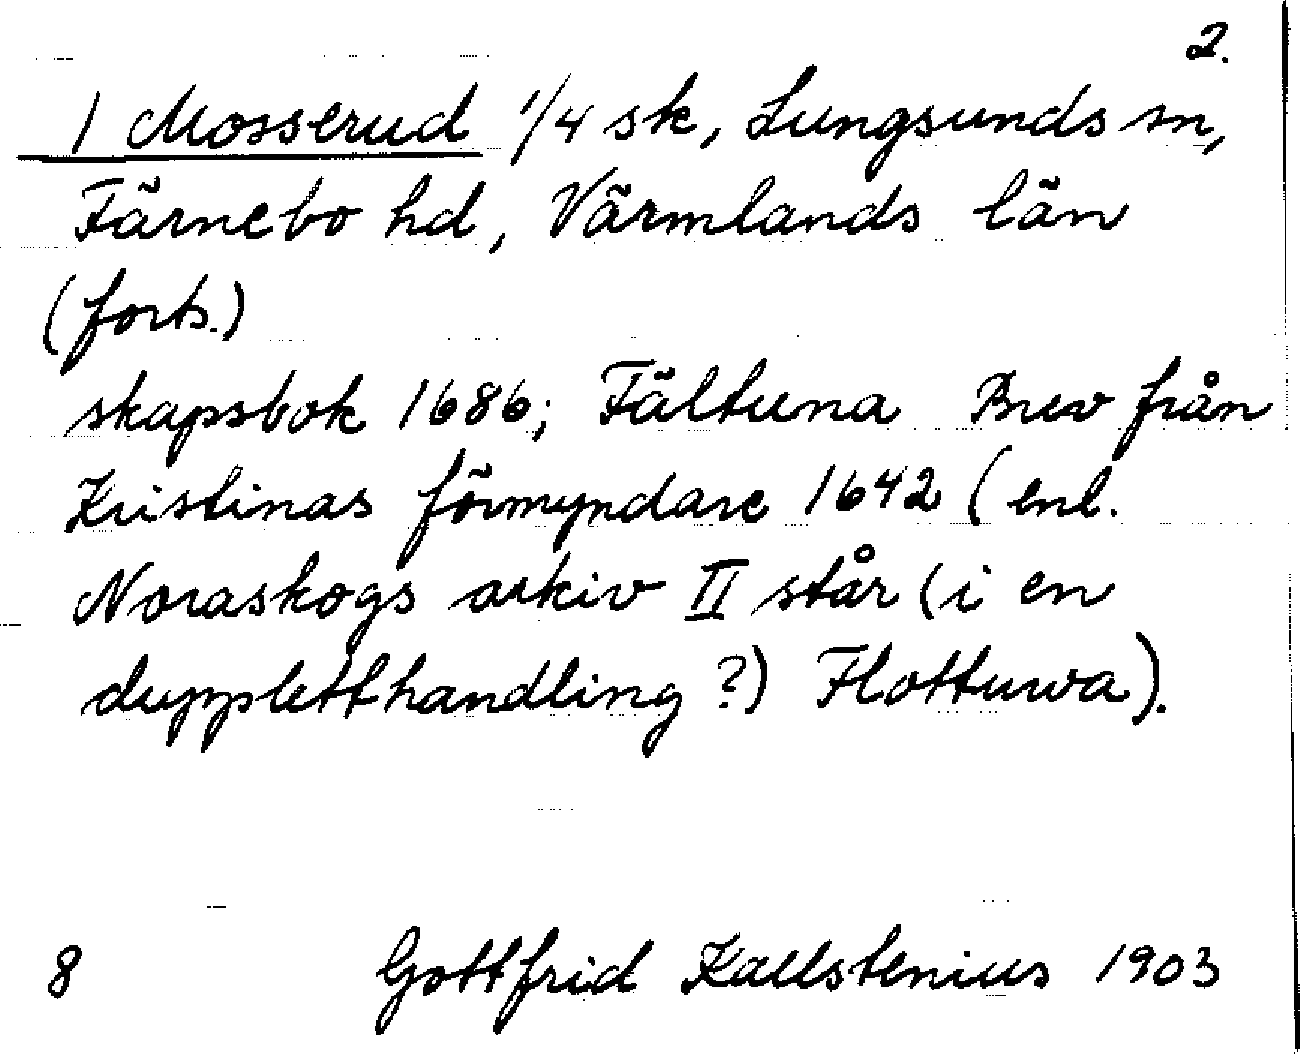 2.
1 Mosserud 1/4 sk, Lungsunds sn,
Färnebo hd, Värmlands län
(forts.)
skapsbok 1686; Fältuna Brev från
Kristinas förmyndare 1642 (enl.
Noraskogs arkiv II står (i en
dupplett handling ?) Flottuwa).
8 Gottfrid Kallstenius 1903